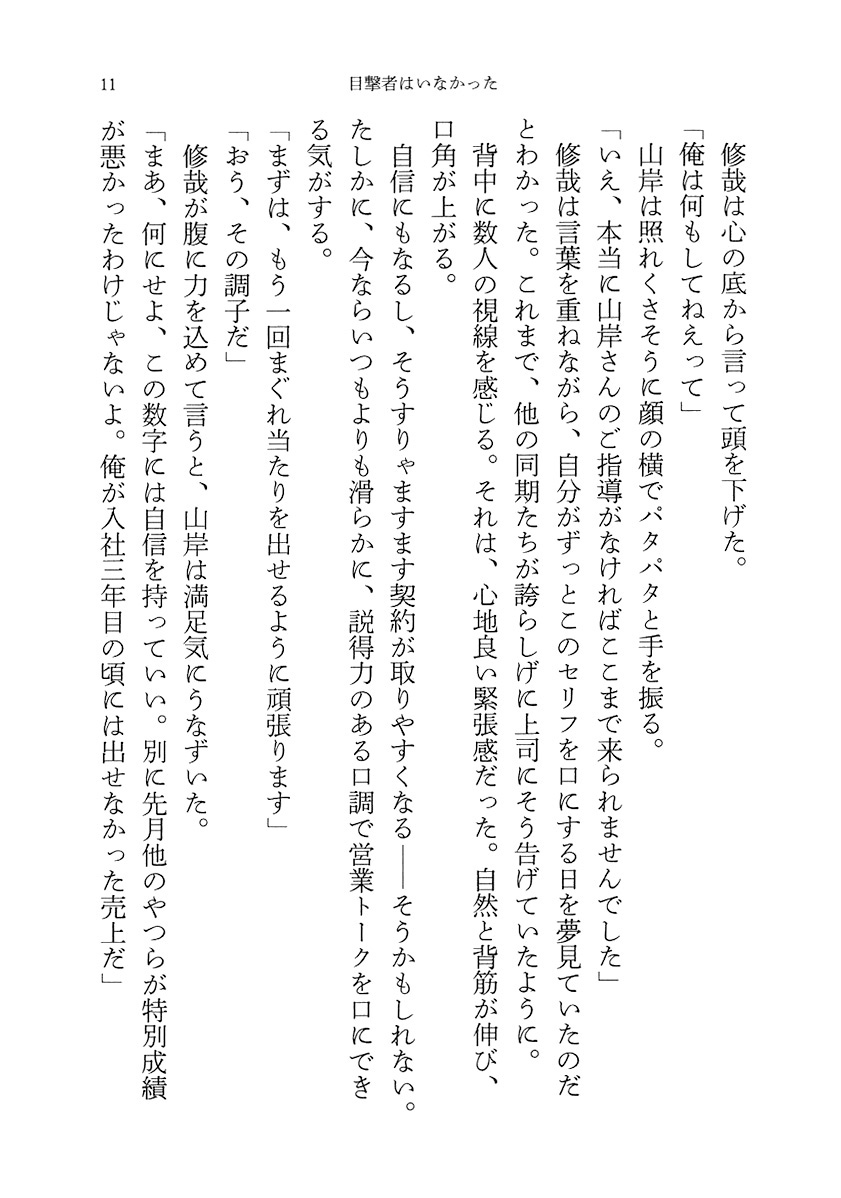 11
目撃者はいなかった
修哉は心の底から言って頭を下げた。
「俺は何もしてねえって」
山岸は照れくさそうに顔の横でパタパタと手を振る。
「いえ、本当に山岸さんのご指導がなければここまで来られませんでした」
修哉は言葉を重ねながら、自分がずっとこのセリフを口にする日を夢見ていたのだ
とわかった。これまで、他の同期たちが誇らしげに上司にそう告げていたように。
背中に数人の視線を感じる。それは、心地良い緊張感だった。自然と背筋が伸び、
口角が上がる。
自信にもなるし、そうすりゃますます契約が取りやすくなる――そうかもしれない。
たしかに、今ならいつもよりも滑らかに、説得力のある口調で営業トークを口にでき
る気がする。
「まずは、もう一回まぐれ当たりを出せるように頑張ります」
「おう、その調子だ」
修哉が腹に力を込めて言うと、山岸は満足気にうなずいた。
「まあ、何にせよ、この数字には自信を持っていい。別に先月他のやつらが特別成績
が悪かったわけじゃないよ。俺が入社三年目の頃には出せなかった売上だ」